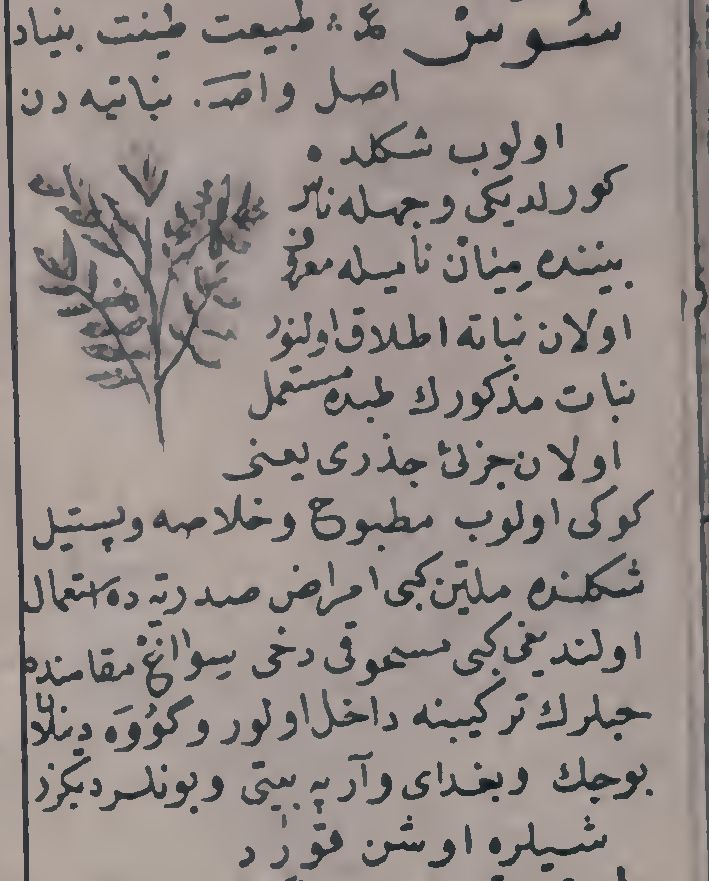 سُوس عم : طبيعت طينت بنياد
اصل واصـ. نباتيه دن
اولوب شكلده
كورلديكى وجهله ناس
بيننده مِيَان ناميله معروف
اولان نباته اطلاق اولنور
نبات مذكورك طبده مستعمل
اولان جزئ جذرى يعنى
كوكى اولوب مطبوخ وخلاصه وپستيل
شكلنده ملين كبى امراض صدريه ده استعمال
اولنديغى كبى مسحوقى دخى يسوااغ مقامنده
حبلرك تركيبنه داخل اولور وكُووَه دينلان
بوجك وبغداى وآرپه بيتى وبونلر ديكر
شيلره اوشن قورد